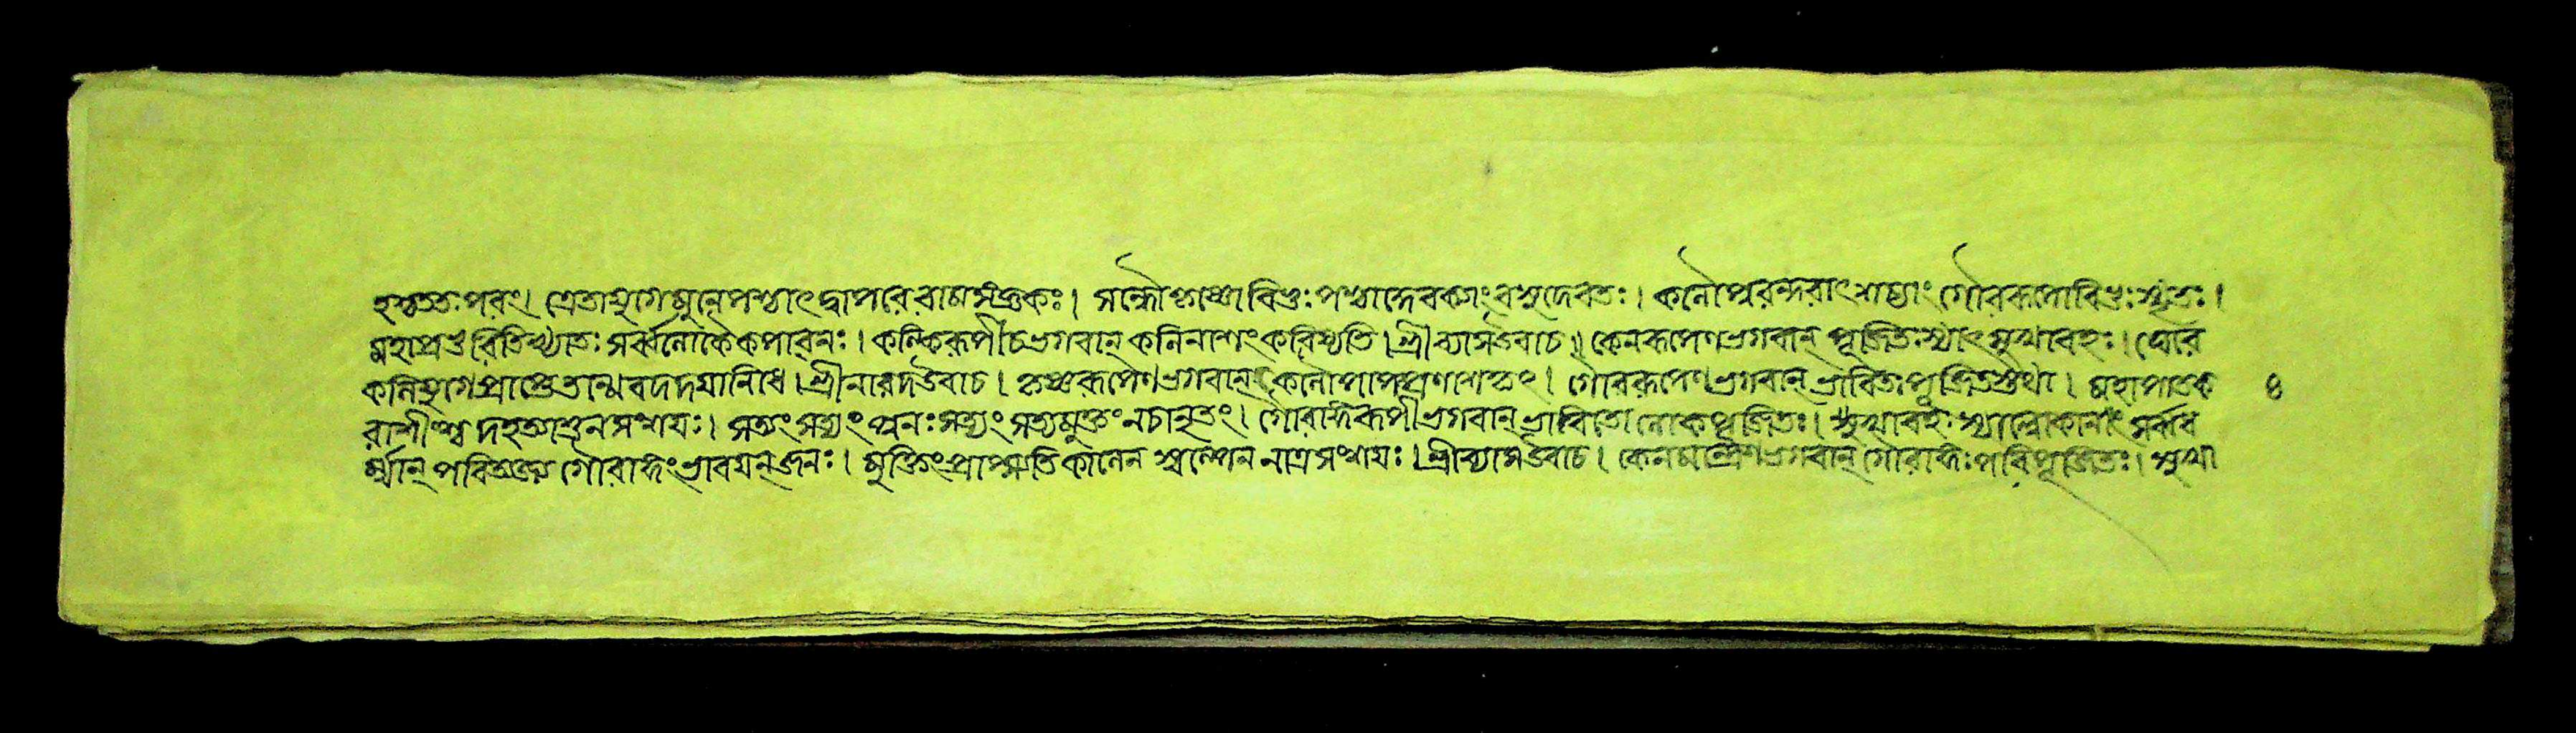 হস্বততঃপরং। ত্রেতাযুগেমুনেপশ্চাৎদ্বাপরেরামসংজ্ঞকঃ। সন্ধৌকৃষ্ণোবিভুঃপশ্চাদ্দেবক্যাংবসুদেবতঃ। কলৌপুরন্দরাৎশচ্যাংগৌররূপোবিভুঃস্মৃতঃ।
মহাপ্রভুরিতিখ্যাতঃসর্ব্বলোকৈকপাবনঃ। কল্কিরূপীচভগবান্ কলিনাশংকরিষ্যতি। শ্রীব্যাসউবাচ॥ কেনরূপেণভগবান্ পূজিতঃস্যাৎসুখাবহঃ। ঘোর
কলিযুগেপ্রাপ্তেতান্মেবদদয়ানিধে। শ্রীনারদউবাচ। কৃষ্ণরূপেণভগবান্ কলৌপাপপ্রণাশকৃৎ। গৌররূপেণভগবান্ ভাবিতঃপূজিতস্তথা। মহাপাতক ৪
রাশীংশ্চ দহত্যাশুনসংশয়ঃ। সত্যংসত্যংপুনঃসত্যংসত্যমুক্তংনচানৃতং। গৌরাঙ্গরূপীভগবান্ ভাবিতোলোকপূজিতঃ। সুখাবহঃস্যাল্লোকানাংসর্ব্বধ
র্ম্মান্ পরিত্যজ্যগৌরাঙ্গংভাবয়ন্ জনঃ। মুক্তিংপ্রাপ্স্যতিকালেনস্বল্পেননাত্রসংশয়ঃ। শ্রীব্যাসউবাচ। কেনমন্ত্রেণভগবান্ গৌরাঙ্গঃপরিপূজিতঃ। সুখা